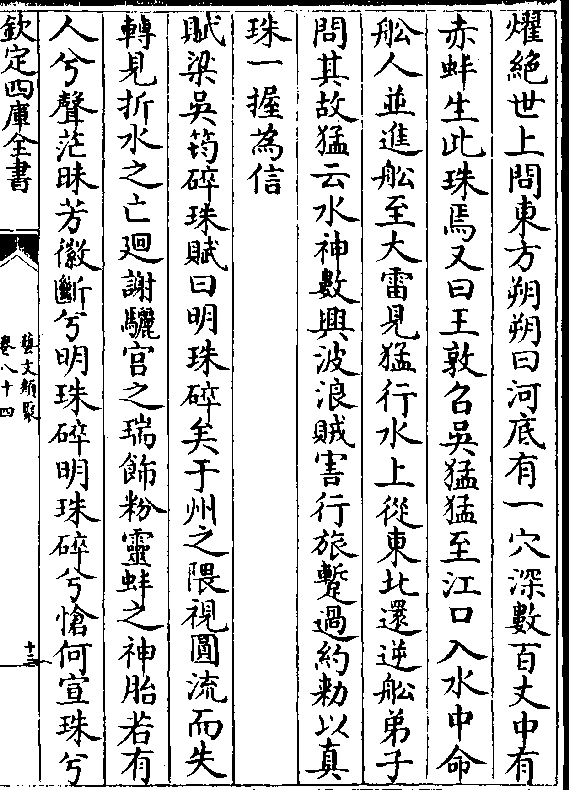 燿絶世上問東方朔朔曰河底有一穴深數百丈中有
赤蚌生此珠焉又曰王敦召吳猛猛至江口入水中命
舩人並進舩至大雷見猛行水上從東北還逆舩弟子
問其故猛云水神數興波浪賊害行旅蹔過約勑以真
珠一握為信
賦梁吳筠碎珠賦曰明珠碎矣于州之隈視圓流而失
轉見折水之亡廻謝驪宫之瑞飾粉靈蚌之神胎若有
人兮聲茫昧芳徽斷兮明珠碎明珠碎兮愴何宣珠兮
欽定四庫全書
藝文類聚
卷八十四
十三